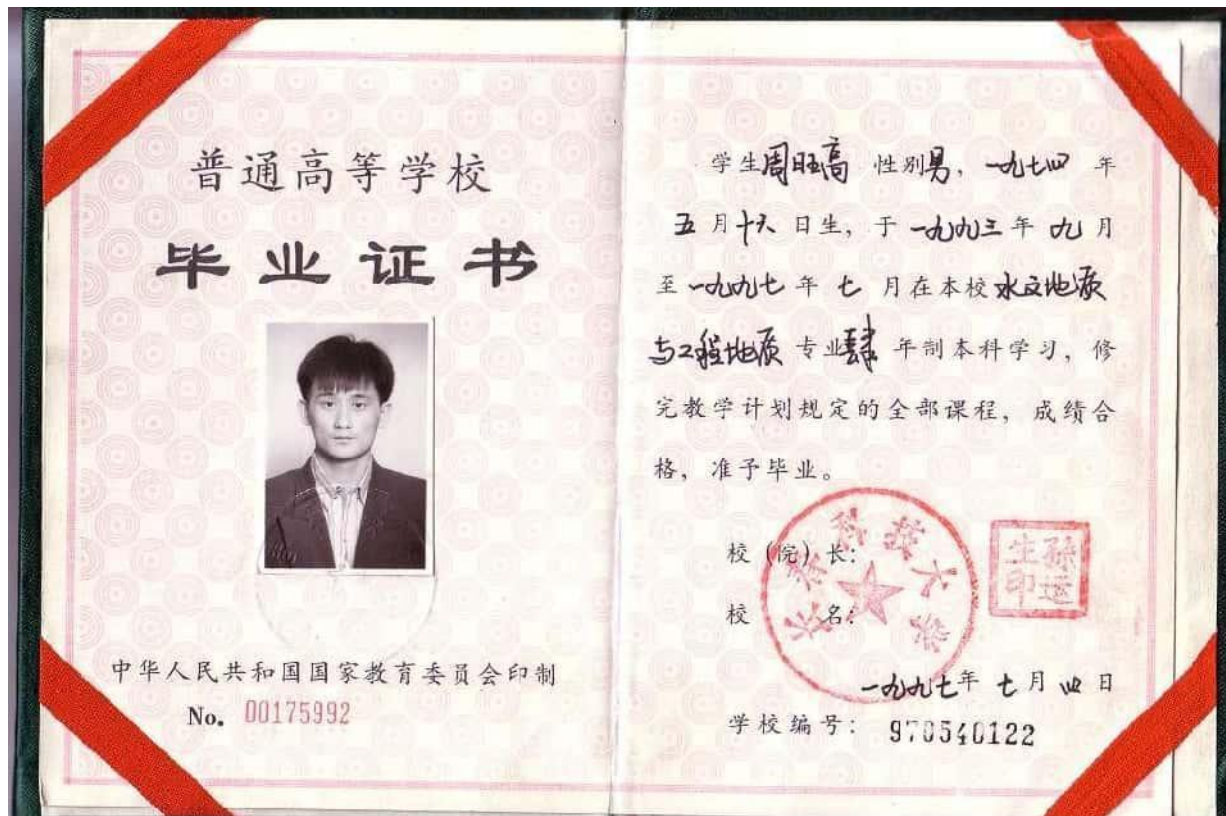 普通高等学校
毕业证书
中华人民共和国国家教育委员会印制
No. 00175992
学生周旺高 性别男，一九七四 年
五 月十六 日生，于 一九九三 年 九 月
至 一九九七 年 七 月在本校 水文地质
与工程地质 专业肆 年制本科学习，修
完教学计划规定的全部课程，成绩合
格，准予毕业。
校（院）长：
孙运生印
校 名：
长春科技大学
一九九七年 七 月 四 日
学校编号： 970540122